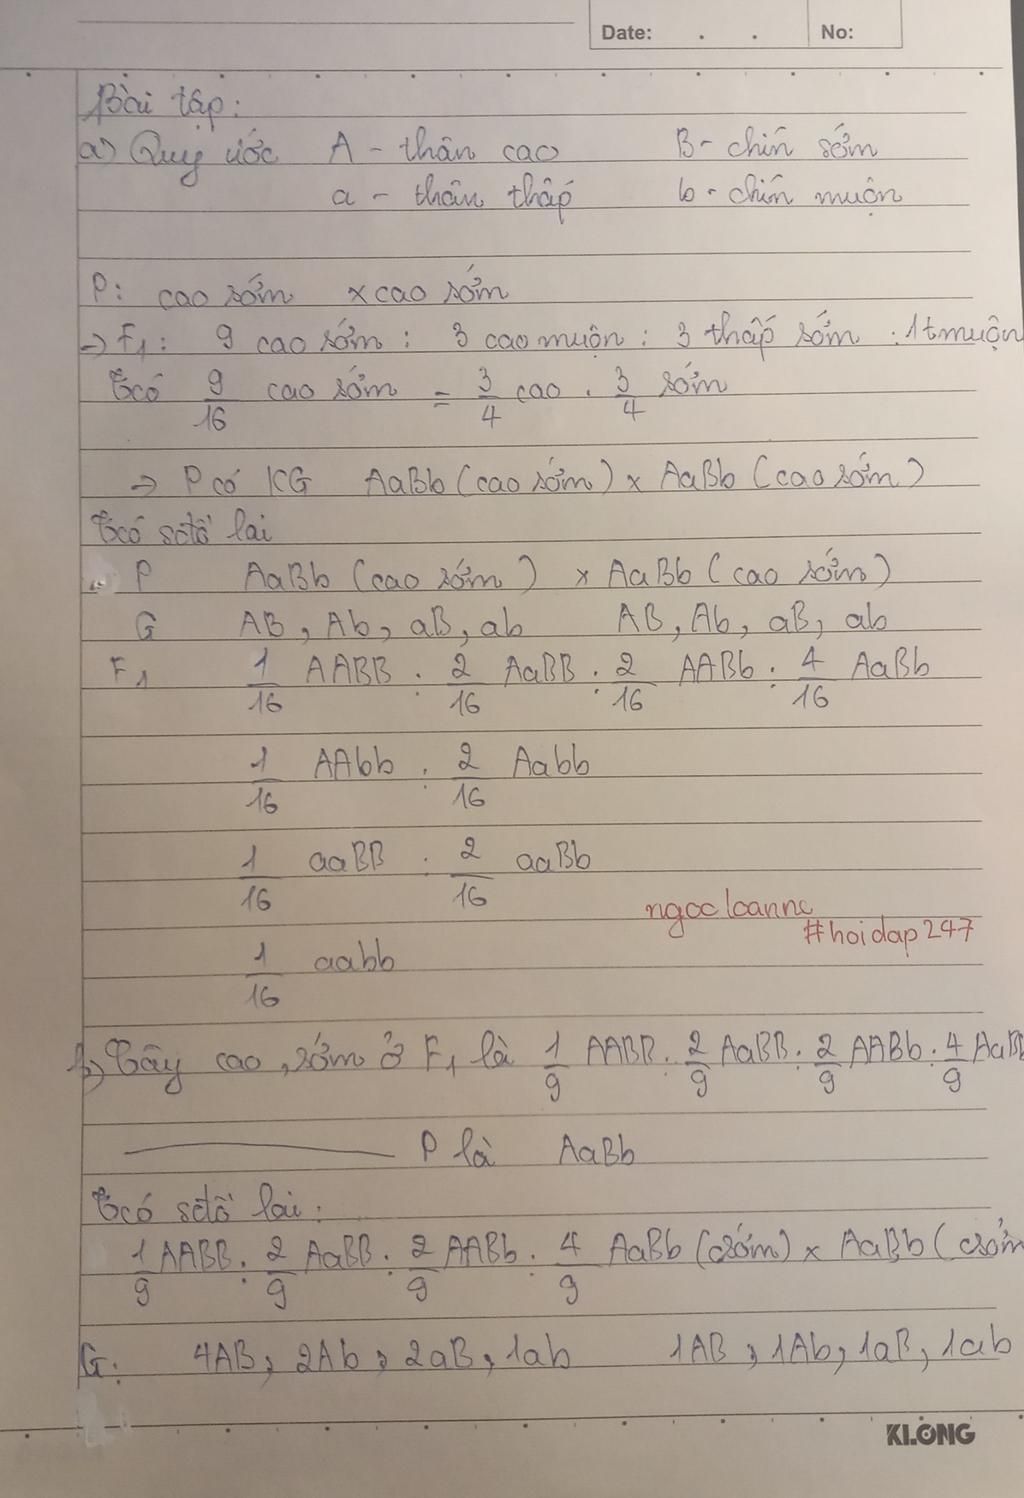 Date: . . No:
Bài tập:
a) Quy ước A - thân cao B - chín sớm
a - thân thấp b - chín muộn
P: cao sớm x cao sớm
→ F1: 9 cao sớm : 3 cao muộn : 3 thấp sớm : 1 t muộn
Có 9/16 cao sớm = 3/4 cao . 3/4 sớm
→ P có KG AaBb (cao sớm) x AaBb (cao sớm)
Có sđồ lai
P AaBb (cao sớm) x AaBb (cao sớm)
G AB, Ab, aB, ab AB, Ab, aB, ab
F1 1/16 AABB : 2/16 AaBB : 2/16 AABb : 4/16 AaBb
1/16 AAbb : 2/16 Aabb
1/16 aaBB : 2/16 aaBb
ngocloannc
#hoidap247
1/16 aabb
b) Cây cao, sớm ở F1 là 1/9 AABB : 2/9 AaBB : 2/9 AABb : 4/9 AaB
P là AaBb
Có sđồ lai:
1/9 AABB : 2/9 AaBB : 2/9 AABb : 4/9 AaBb (csớm) x AaBb (csớm
G: 4AB, 2Ab, 2aB, 1ab 1AB, 1Ab, 1aB, 1ab
KLONG